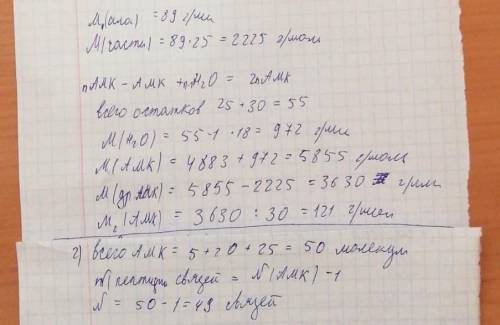 M₁(ала) = 89 г/мол
M(части) = 89·25 = 2225 г/мол
nАМК - АМК + nH₂O = 2nАМК
всего остатков 25 + 30 = 55
M(H₂O) = 55-1 · 18 = 972 г/мол
M(АМК) = 4883 + 972 = 5855 г/моль
M(др АМК) = 5855 - 2225 = 3630 г/мол
M₂(АМК) = 3630 : 30 = 121 г/мол
2) всего АМК = 5 + 20 + 25 = 50 молекул
N(пептидн связей = N(АМК) - 1
N = 50 - 1 = 49 связей